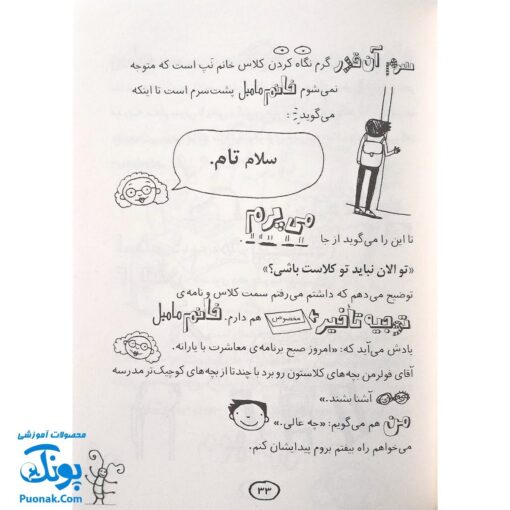 سرم آن قدر گرم نگاه کردن کلاس خانم نَپ است که متوجه
نمی‌شوم خانم مامبل پشت‌سرم است تا اینکه
می‌گوید:
سلام تام.
تا این را می‌گوید از جا می‌پرم.
«تو الان نباید تو کلاست باشی؟»
توضیح می‌دهم که داشتم می‌رفتم سمت کلاس و نامه‌ی
توجیه تأخیر مخصوص هم دارم. خانم مامبل
یادش می‌آید که: «امروز صبح برنامه‌ی معاشرت با یارانه.
آقای فولرمن بچه‌های کلاستون رو برد با چندتا از بچه‌های کوچیک‌تر مدرسه
آشنا بشند.»
من هم می‌گویم: «چه عالی.»
می‌خواهم راه بیفتم بروم پیدایشان کنم.
۳۳
محصولات آموزشی
پونک
Puonak.Com